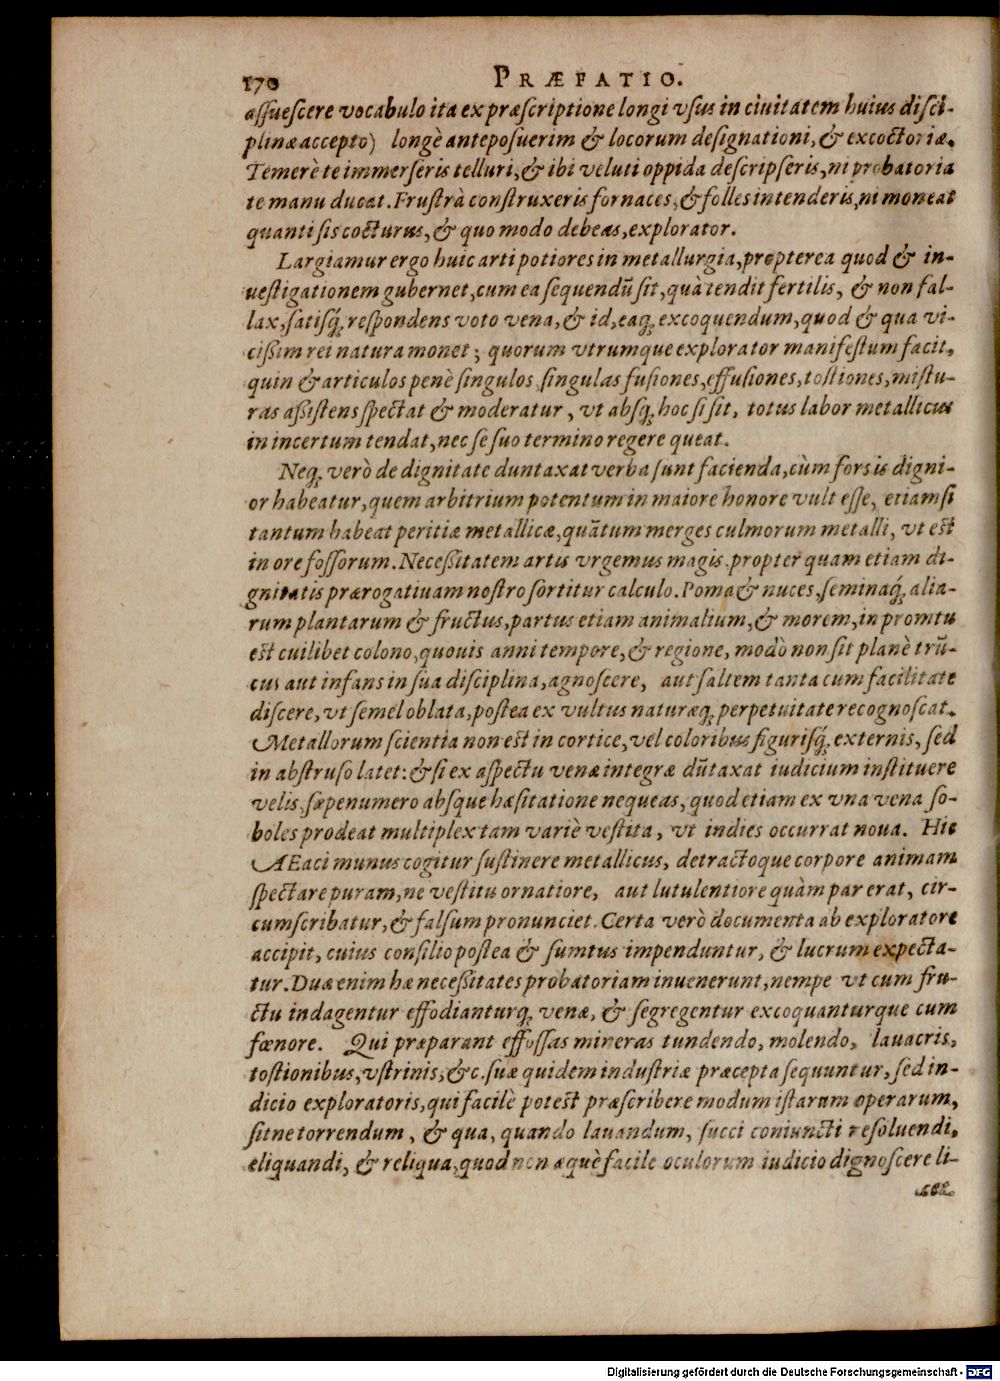 170 PRÆFATIO.
aſſueſcere vocabulo ita ex præſcriptione longi vſus in ciuitatem huius diſci-
plinæ accepto) longè anteposuerim & locorum deſignationi, & excoctoriæ.
Temerè te immerſeris telluri, & ibi veluti oppida deſcripſeris, ni probatoria
te manu ducat. Fruſtrà conſtruxeris fornaces, & folles intenderis, ni moneat
quanti ſis cocturus, & quo modo debeas, explorator.
Largiamur ergo huic arti potiores in metallurgia, propterea quod & in-
ueſtigationem gubernet, cum ea ſequendū ſit, quà tendit fertilis, & non fal-
lax, ſatisq́; reſpondens voto vena, & id, eaq; excoquendum, quod & qua vi-
ciſſim rei natura monet; quorum vtrumque explorator manifeſtum facit,
quin & articulos penè ſingulos, ſingulas fuſiones, effuſiones, toſtiones, miſtu-
ras aſſiſtens ſpectat & moderatur, vt abſq; hoc ſi ſit, totus labor metallicus
in incertum tendat, nec ſe ſuo termino regere queat.
Neq; verò de dignitate duntaxat verba ſunt facienda, cùm fors is digni-
or habeatur, quem arbitrium potentum in maiore honore vult eſſe, etiamſi
tantum habeat peritiæ metallicæ, quātum merges culmorum metalli, vt eſt
in ore foſſorum. Neceſſitatem artis vrgemus magis, propter quam etiam di-
gnitatis prærogatiuam noſtro ſortitur calculo. Poma & nuces, ſeminaq́; alia-
rum plantarum & fructus, partus etiam animalium, & morem, in promtu
eſt cuilibet colono, quouis anni tempore, & regione, modò non ſit planè trū-
cus aut infans in ſua diſciplina, agnoſcere, aut ſaltem tanta cum facilitate
diſcere, vt ſemel oblata, poſtea ex vultus naturæq; perpetuitate recognoſcat.
Metallorum ſcientia non eſt in cortice, vel coloribus figuriſq́; externis, ſed
in abſtruſo latet: & ſi ex aſpectu venæ integræ dūtaxat iudicium inſtituere
velis, ſæpenumero abſque hæſitatione nequeas, quod etiam ex vna vena ſo-
boles prodeat multiplex tam variè veſtita, vt indies occurrat noua. Hic
AEaci munus cogitur ſuſtinere metallicus, detractoque corpore animam
ſpectare puram, ne veſtitu ornatiore, aut lutulentiore quàm par erat, cir-
cumſcribatur, & falſum pronunciet. Certa verò documenta ab exploratore
accipit, cuius conſilio poſtea & ſumtus impenduntur, & lucrum expecta-
tur. Duæ enim hæ neceſſitates probatoriam inuenerunt, nempe vt cum fru-
ctu indagentur effodianturq; venæ, & ſegregentur excoquanturque cum
fœnore. Qui præparant effoſſas mineras tundendo, molendo, lauacris,
toſtionibus, vſtrinis, &c. ſuæ quidem induſtriæ præcepta ſequuntur, ſed in-
dicio exploratoris, qui facilè poteſt præſcribere modum iſtarum operarum,
ſitne torrendum, & qua, quando lauandum, ſucci coniuncti reſoluendi,
eliquandi, & reliqua, quod non æquè facile oculorum iudicio dignoſcere li-
Digitalisierung gefördert durch die Deutsche Forschungsgemeinschaft - DFG